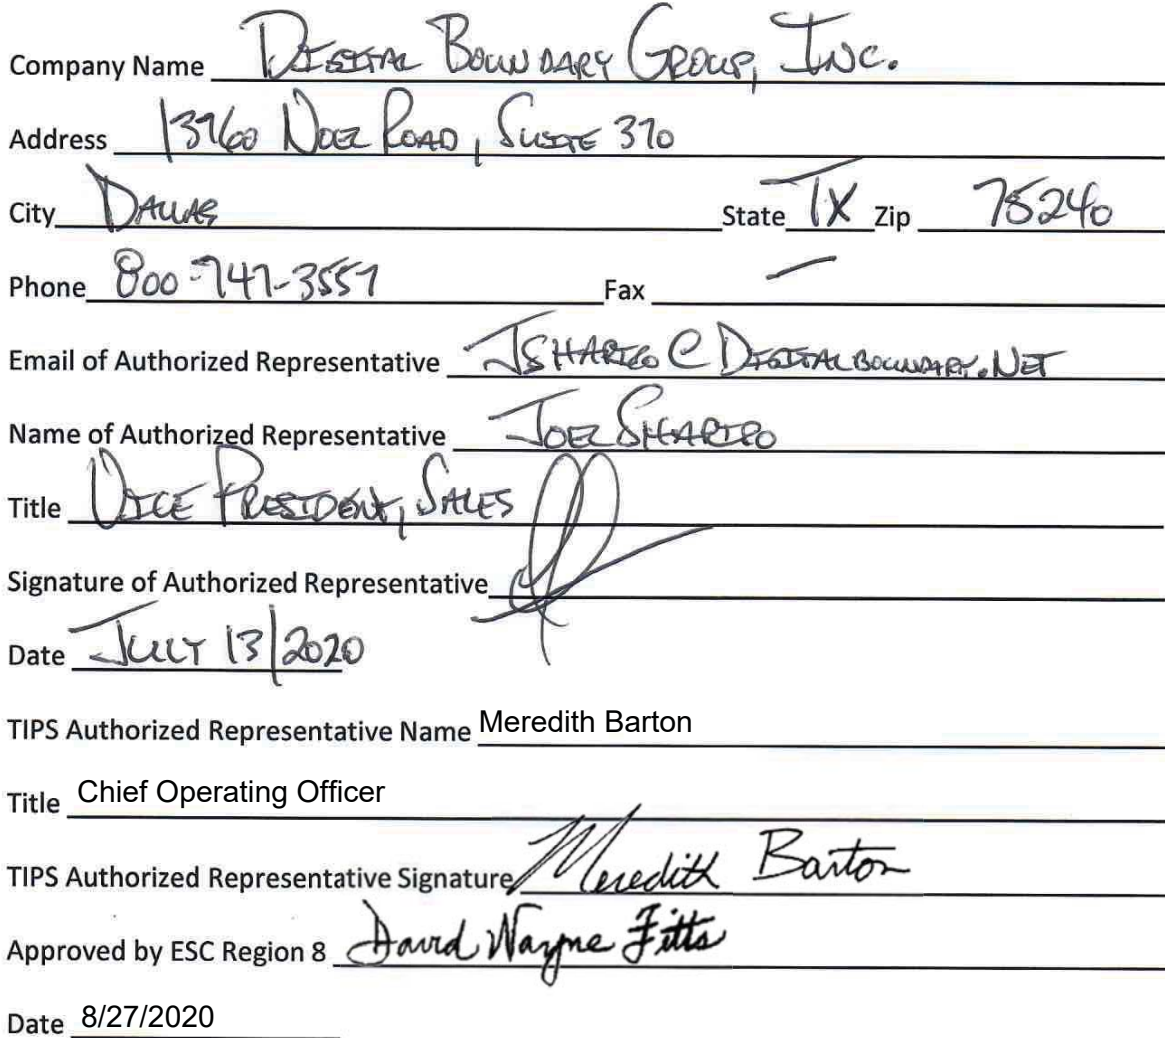 Company Name DIGITAL BOUNDARY GROUP, INC.
Address 13760 NOEL ROAD, SUITE 370
City DALLAS State TX Zip 75240
Phone 800-747-3557 Fax —
Email of Authorized Representative JSHAPIRO@DIGITALBOUNDARY.NET
Name of Authorized Representative JOEL SHAPIRO
Title VICE PRESIDENT, SALES
Signature of Authorized Representative
Date JULY 13/2020
TIPS Authorized Representative Name Meredith Barton
Title Chief Operating Officer
TIPS Authorized Representative Signature Meredith Barton
Approved by ESC Region 8 David Wayne Fitts
Date 8/27/2020